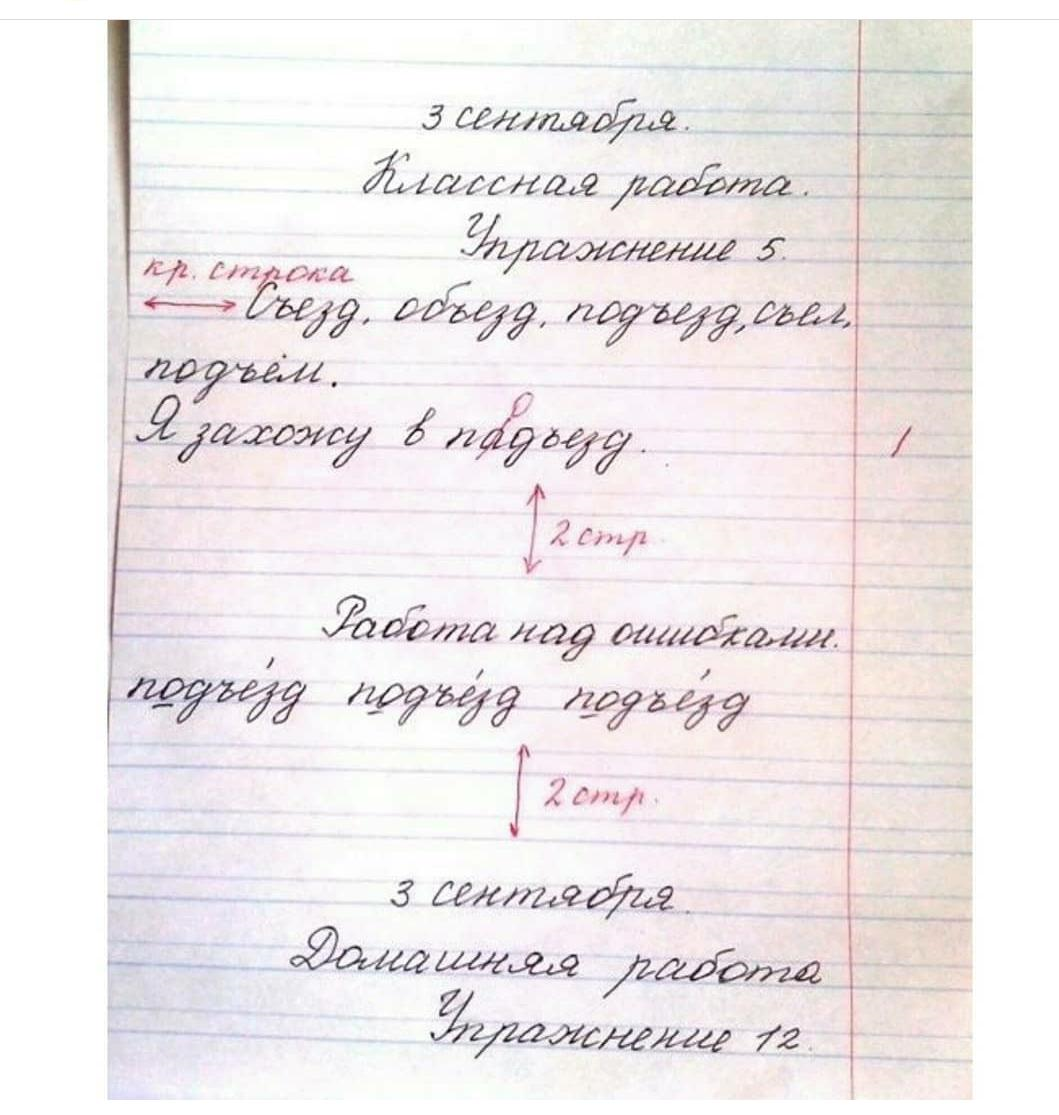 3 сентября.
Классная работа.
Упражнение 5.
кр. строка
Съезд, объезд, подъезд, съел,
подъём.
о
Я захожу в падъезд.
2 стр.
Работа над ошибками.
подъе́зд подъе́зд подъе́зд
2 стр.
3 сентября.
Домашняя работа
Упражнение 12.